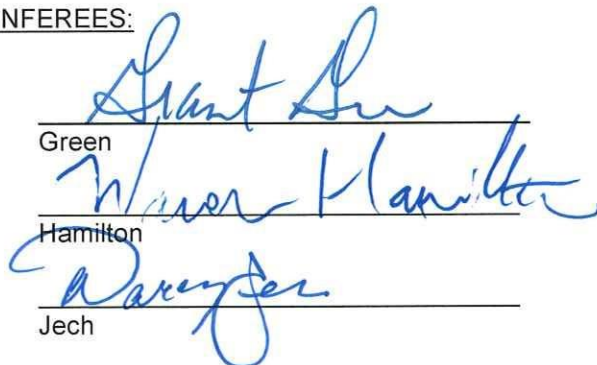 NFEREES:
Grant Gr
Green
Warren Hamilton
Hamilton
Darcy Jech
Jech